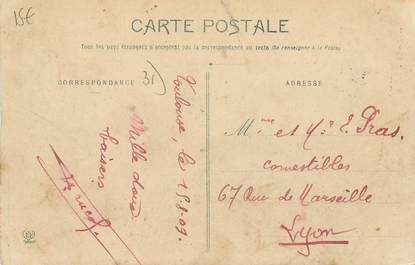 15€
CARTE POSTALE
Tous les pays étrangers n'acceptent pas la correspondance au recto (Se renseigner à la Poste)
CORRESPONDANCE
ADRESSE
Toulouse, le 15.8.09.
Mille doux
baisers
Mme et Mr E. Pras.
comestibles
67 Rue de Marseille
Lyon